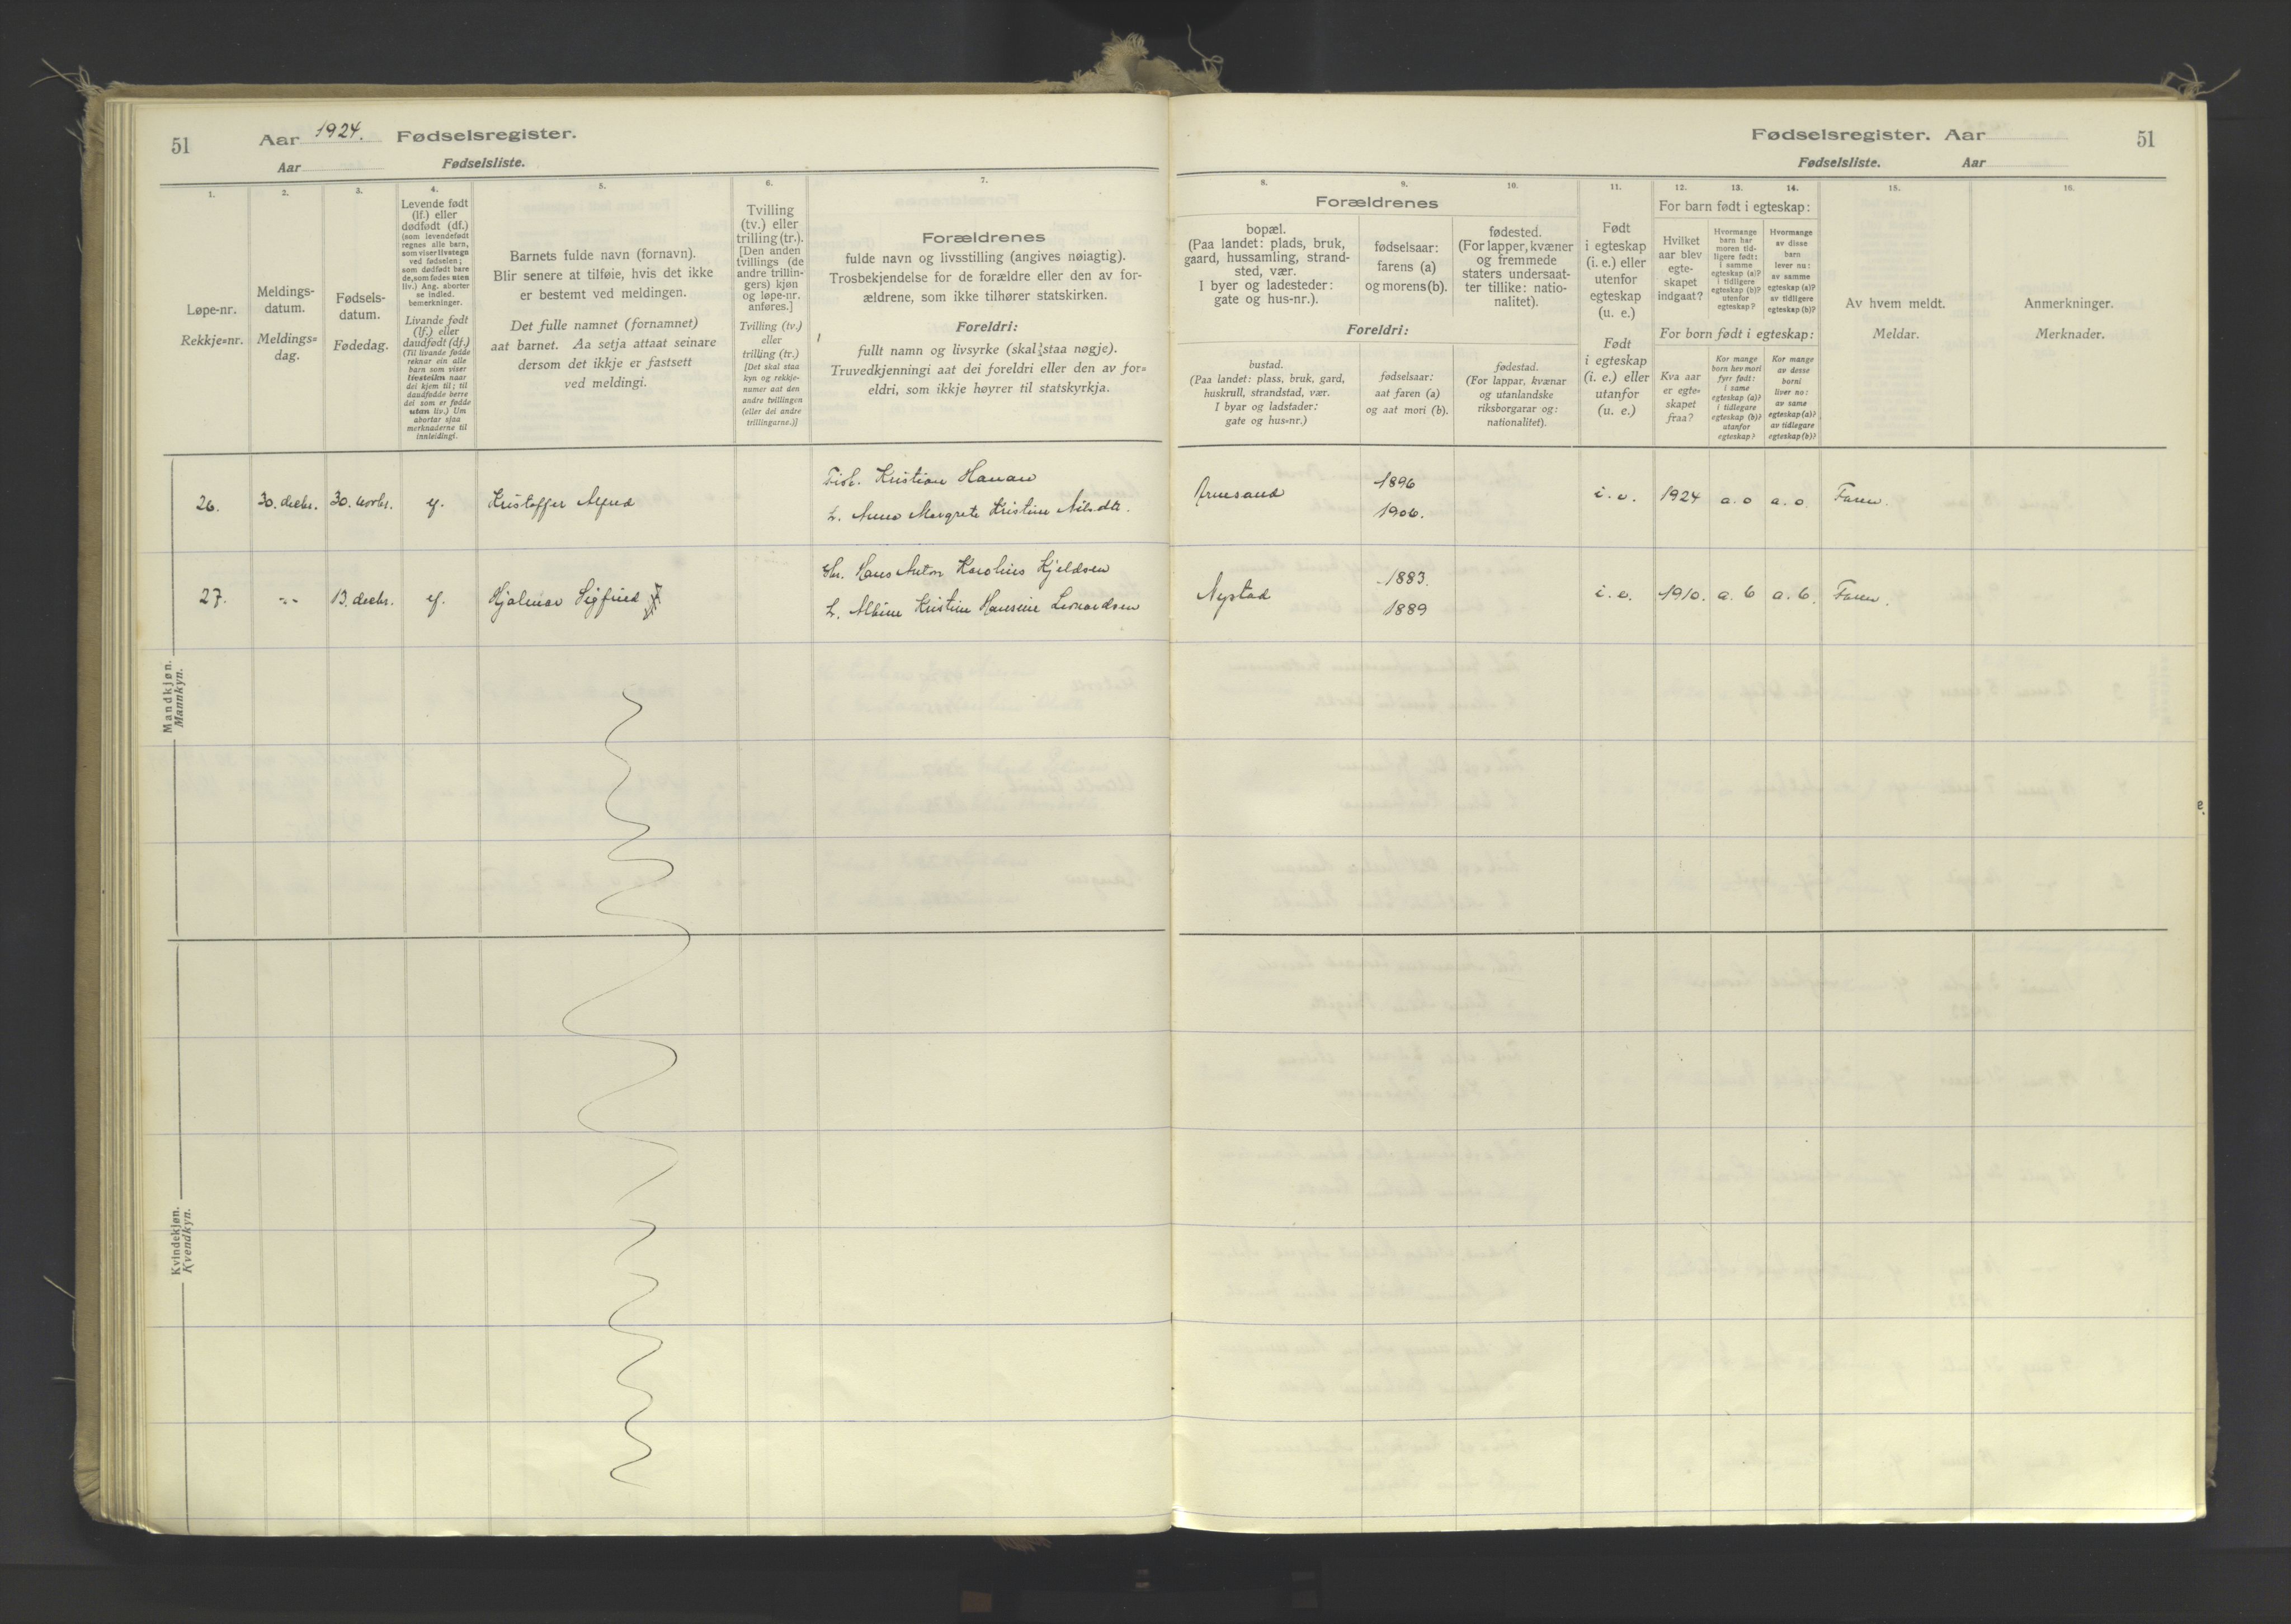 51 Aar 1924. Fødselsregister.
Aar Fødselsliste.
Fødselsregister. Aar 51
Fødselsliste. Aar
1. 2. 3. 4. 5. 6. 7.
Løpe-nr.
Rekkje=nr.
Meldings-
datum.
Meldings=
dag.
Fødsels-
datum.
Fødedag.
Levende født
(lf.) eller
dødfødt (df.)
(som levendefødt
regnes alle barn,
som viser livstegn
ved fødselen;
som dødfødt bare
de, som fødes uten
liv.) Ang. aborter
se indled.
bemerkninger.
Livande født
(lf.) eller
daudfødt (df.)
(Til livande fødde
reknar ein alle
barn som viser
livsteikn naar
dei kjem til; til
daudfødde berre
dei som er fødde
utan liv.) Um
abortar sjaa
merknaderne til
innleidingi.
Barnets fulde navn (fornavn).
Blir senere at tilføie, hvis det ikke
er bestemt ved meldingen.
Det fulle namnet (fornamnet)
aat barnet. Aa setja attaat seinare
dersom det ikkje er fastsett
ved meldingi.
Tvilling
(tv.) eller
trilling (tr.).
[Den anden
tvillings (de
andre trillin-
gers) kjøn
og løpe-nr.
anføres.]
Tvilling (tv.)
eller
trilling (tr.)
[Det skal staa
kyn og rekkje-
numer aat den
andre tvillingen
(eller dei andre
trillingarne.)]
Forældrenes
fulde navn og livsstilling (angives nøiagtig).
Trosbekjendelse for de forældre eller den av for-
ældrene, som ikke tilhører statskirken.
Foreldri:
fullt namn og livsyrke (skal staa nøgje).
Truvedkjenningi aat dei foreldri eller den av for=
eldri, som ikkje høyrer til statskyrkja.
8. 9. 10. 11. 12. 13. 14. 15. 16.
Forældrenes
bopæl.
(Paa landet: plads, bruk,
gaard, hussamling, strand-
sted, vær.
I byer og ladesteder:
gate og hus-nr.).
fødselsaar:
farens (a)
og morens (b).
fødested.
(For lapper, kvæner
og fremmede
staters undersaat-
ter tillike: natio-
nalitet).
Foreldri:
bustad.
(Paa landet: plass, bruk, gard,
huskrull, strandstad, vær.
I byar og ladstader:
gate og hus=nr.)
fødselsaar:
aat faren (a)
og aat mori (b).
fødestad.
(For lappar, kvænar
og utanlandske
riksborgarar og:
nationalitet).
Født
i egteskap
(i. e.) eller
utenfor
egteskap
(u. e.)
Født
i egteskap
(i. e.) eller
utanfor
(u. e.)
For barn født i egteskap:
Hvilket
aar blev
egte-
skapet
indgaat?
Hvormange
barn har
moren tid-
ligere født:
i samme
egteskap (a)?
i tidligere
egteskap (b)?
utenfor
egteskap?
Hvormange
av disse
barn
lever nu:
av samme
egteskap (a)?
av tidligere
egteskap (b)?
For born født i egteskap:
Kva aar
er egte=
skapet
fraa?
Kor mange
born hev mori
fyrr født:
i same
egteskap (a)?
i tidlegare
egteskap (b)?
utanfor
egteskap?
Kor mange
av desse
borni
liver no:
av same
egteskap (a)?
av tidlegare
egteskap (b)?
Av hvem meldt.
Meldar.
Anmerkninger.
Merknader.
Mandkjøn.
Mannkyn.
26. 30. decbr. 30. novbr. Kristoffer Alfred
Fisk. Kristian Hanan
h. Anna Margrete Kristine
1896
1906.
i. e. 1924 a. o a. o. Faren.
27. -"- 13. decbr. Hjalmar Sigfried
Gbr. Hans Anton Karolius Kjeldsen
h. Albine Kristine Hansine Leonardsen
Nystad
1883.
1889
i. e. 1910. a. 6 a. 6. Faren.
Kvindekjøn.
Kvendkyn.